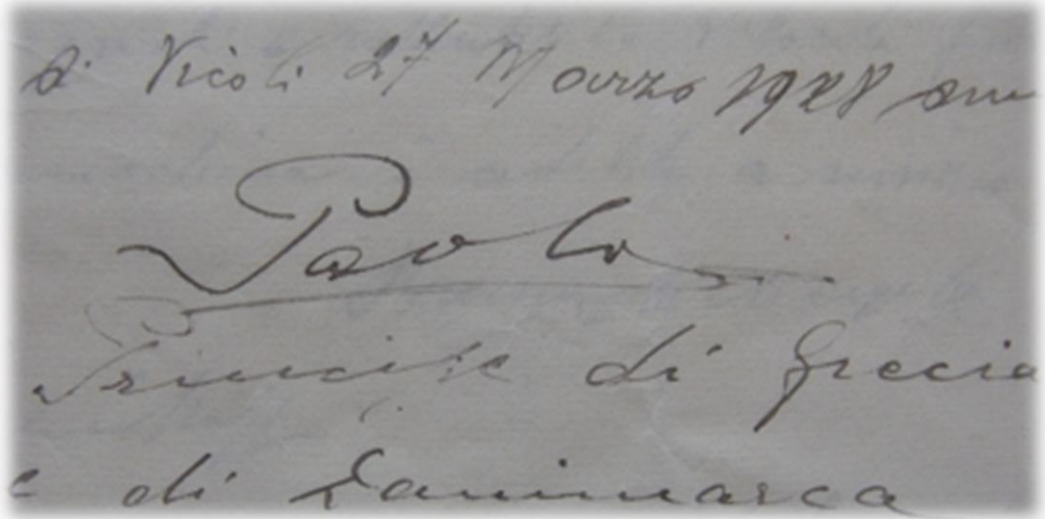 di Vicoli 27 Marzo 1928
Paolo
Principe di Grecia
e di Danimarca